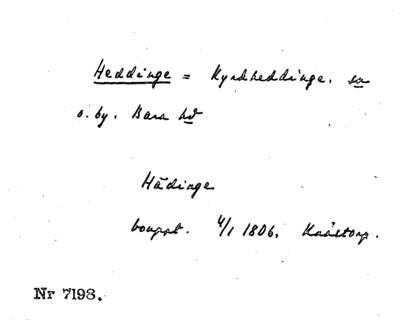 Heddinge = Kyrkheddinge. sn
o. by. Bara hd
Hädinge
bouppt. 4/1 1806. Knästorp.
Nr 7198.